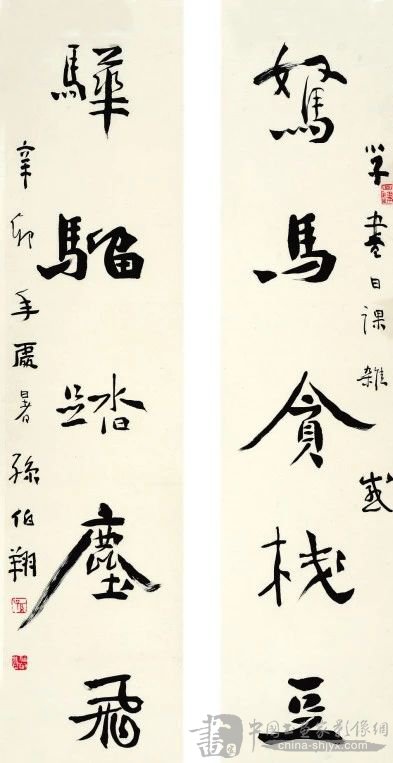 学書日課雜感
駑馬貪棧豆
驊騮踏塵飛
辛卯年處暑孫伯翔
中国书画家影像網
china-shjyx.com